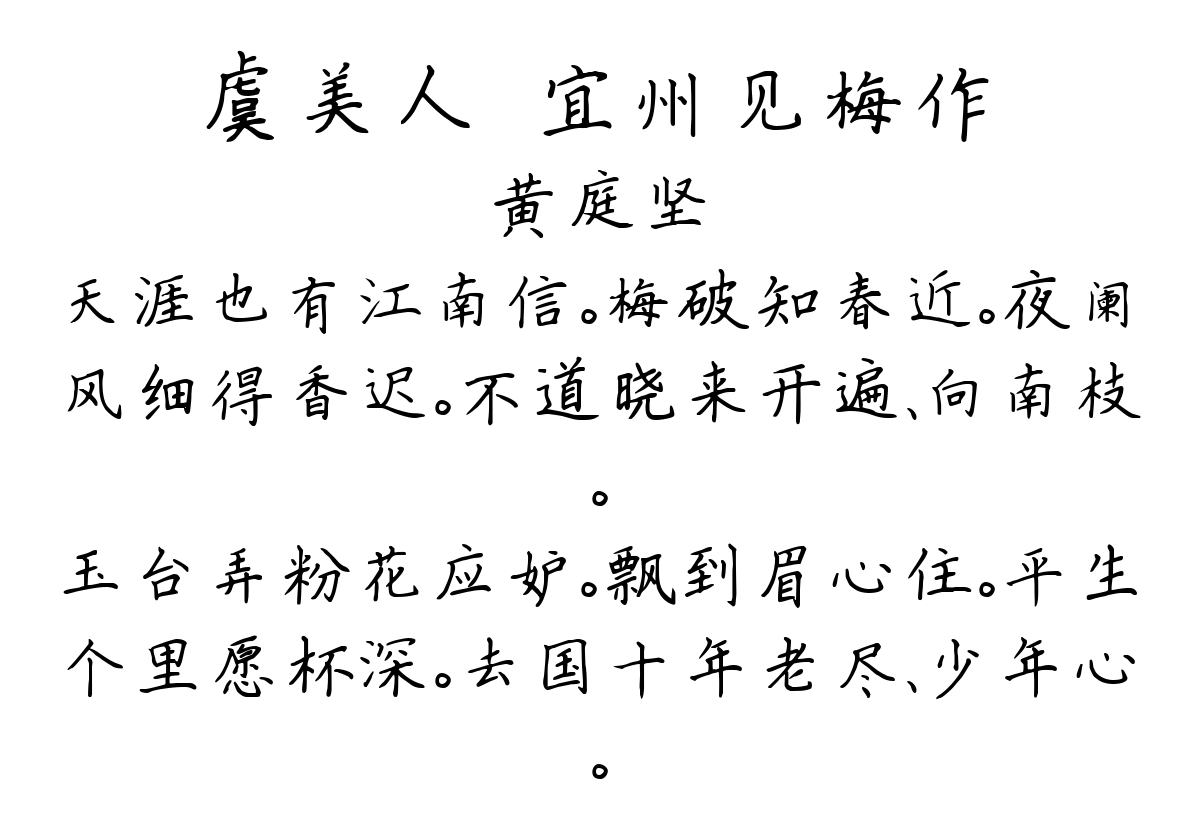 虞美人 宜州见梅作
黄庭坚
天涯也有江南信。梅破知春近。夜阑
风细得香迟。不道晓来开遍、向南枝
。
玉台弄粉花应妒。飘到眉心住。平生
个里愿杯深。去国十年老尽、少年心
。